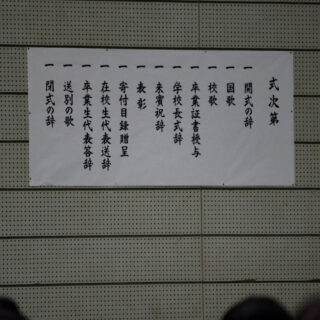 式次第
一 開式の辞
一 国歌
一 校歌
一 卒業証書授与
一 学校長式辞
一 来賓祝辞
一 表彰
一 寄付目録贈呈
一 在校生代表送辞
一 卒業生代表答辞
一 送別の歌
一 閉式の辞